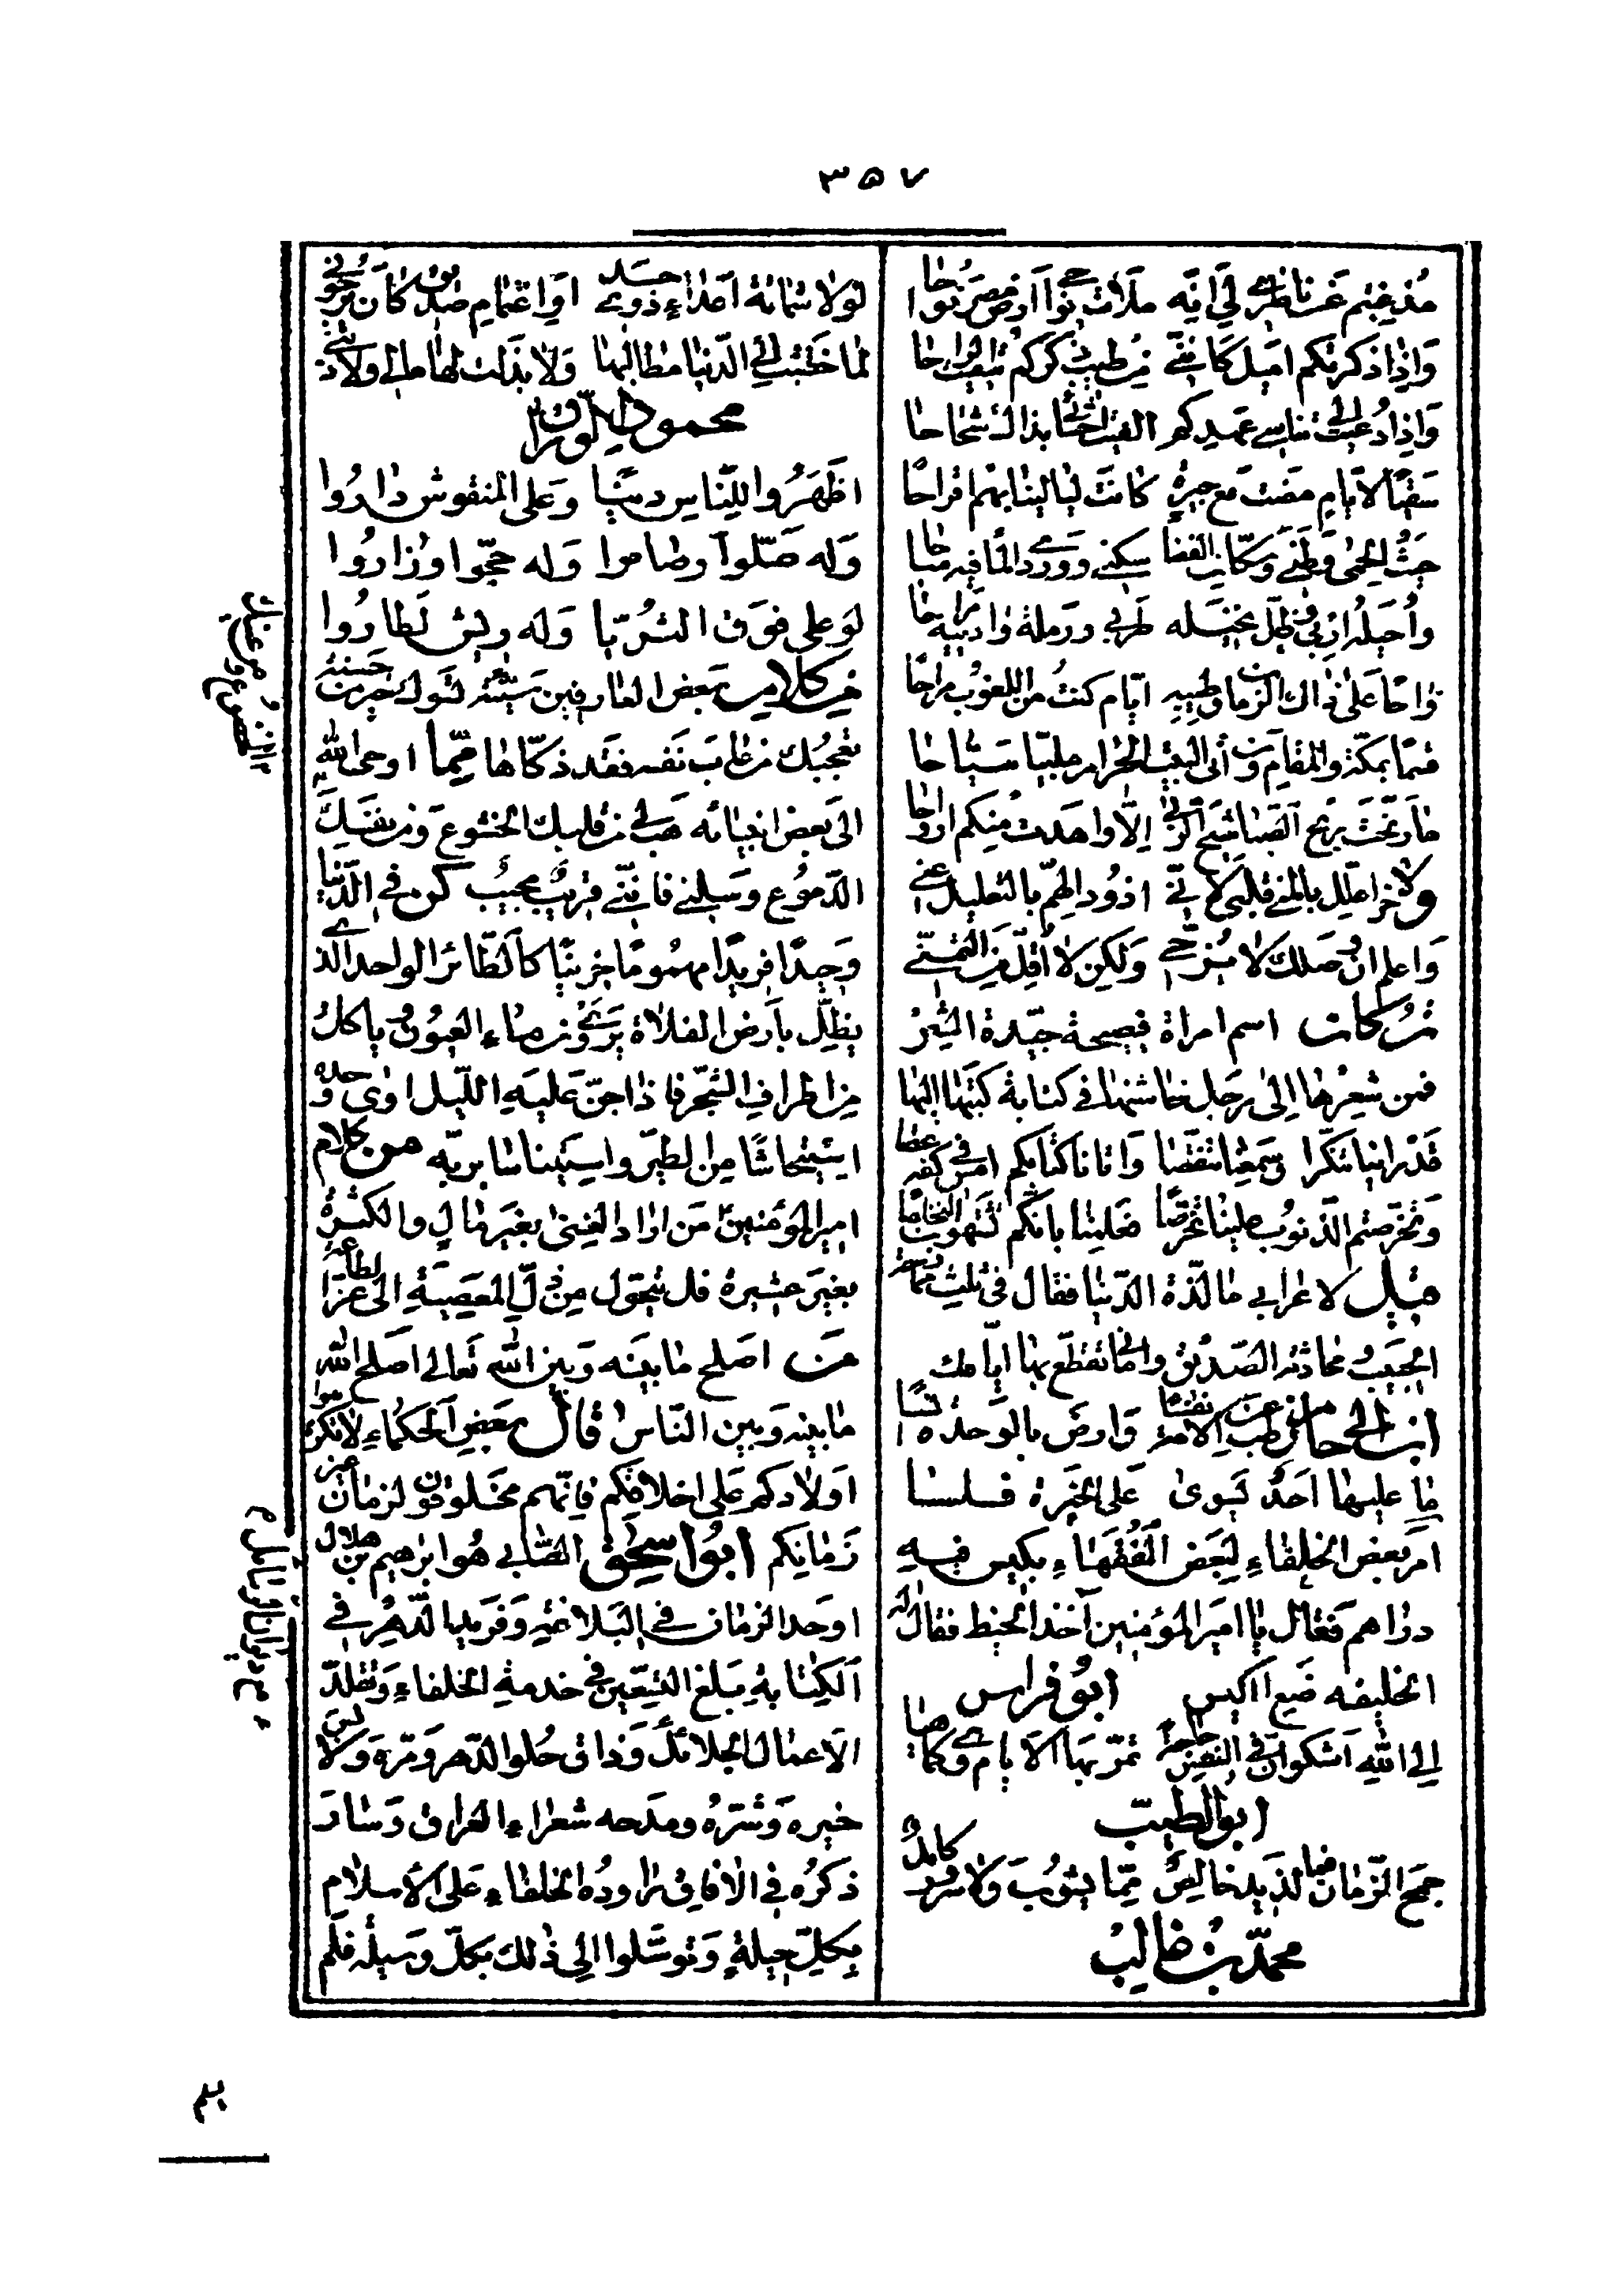 ٣٥٧
مذ غبتم عن ناظري لي انه ملات نواحي ارض مصر نواحا
واذا ذكرتكم اميل كانني من طيب ذكركم سقيت الراحا
واذا دعيت الى تناسي عهدكم الفيت احشائي بذاك شحاحا
سقيا لايام مضت مع جيرة كانت ليالينا بهم افراحا
حيث الحمى وطني وسكان الغضا سكني ووردي الماء فيه مباحا
واهيله اربي وظل نخيله طربي ورملة وادييه مراحا
واها على ذاك الزمان وطيبه ايام كنت من اللغوب مراحا
قسما بمكة والمقام ومن أتى البيت الحرام ملبيا سياحا
ما رنحت ريح الصبا شيح الربى الا واهدت منكم ارواحا
ولاخر اعلل بالمنى قلبي لاني اذود الهم بالتعليل عني
واعلم ان وصلك لا مرجي ولكن لا أقل من التمني
تركات اسم امراة فصيحة جيدة الشعر
فمن شعرها الى رجل خاشنها في كتابة كتبها اليها
قد راينا تنكرا وسمعنا تنقصا واتانا كتابكم امس في كفه عصا
وتخرصتم الذنوب علينا تخرصا فعلمنا بانكم تشتهون التخلصا
قيل لاعرابي ما لذة الدنيا فقال في ثلث ممازحة
الحبيب ومحادثة الصديق واماني تقطع بها ايامك
ابن الحجاج طب عن الامرة نفسا وارض بالوحدة انسا
ما عليها احد يسوى على الخبرة فلسا
امر بعض الخلفاء لبعض الفقهاء بكيس فيه
دراهم فقال يا امير المؤمنين آخذ الخيط فقال له
الخليفه ضع الكيس ابو فراس
الى الله اشكو ان في النفس حاجة تمر بها الايام وهي كما هيا
ابو الطيب
جمح الزمان فما لذيذ خالص مما يشوب ولا سرور كامل
محمد بن غالب
لولا شماتة اعداء ذوي حسد او اغتمام صديق كان يرجوني
لما خطبت الى الدنيا مطالبها ولا بذلت لها مالي ولا ديني
محمود الوراق
اظهروا للناس دينا وعلى المنقوش داروا
وله صلوا وصاموا وله حجوا وزاروا
لو على فوق الثريا وله ريش لطاروا
من كلام بعض العارفين سيئة تسوءك خير من حسنة
تعجبك من عاب نفسه فقد ذكاها مما اوحى الله
الى بعض انبيائه هب لي من قلبك الخشوع ومن نفسك
الدموع وسلني فانني قريب مجيب كن في الدنيا
وحيدا فريدا مهموما حزينا كالطائر الواحد الذي
يظل بارض الفلاة يرتوي من ماء العيون وياكل
من اطراف الشجر فاذا جن عليه الليل اوى وحده
استيحاشا من الطير واستيناسا بربه من كلام
امير المؤمنين من اراد الغنى بغير مال والكثرة
بغير عشيرة فليتحول من ذل المعصية الى عز الطاعة
من اصلح ما بينه وبين الله تعالى اصلح الله
ما بينه وبين الناس قال بعض الحكماء لا تكرهوا
اولادكم على اخلاقكم فانهم مخلوقون لزمان غير
زمانكم ابو اسحق الصابي هو ابرهيم بن هلال
اوحد الزمان في البلاغة وفريد الدهر في
الكتابة بلغ التسعين في خدمة الخلفاء وتقلد
الاعمال الجلائل وذاق حلو الدهر ومره ولابس
خيره وشره ومدحه شعراء العراق وساد
ذكره في الافاق راوده الخلفاء على الاسلام
بكل حيلة وتوسلوا الى ذلك بكل وسيلة فلم